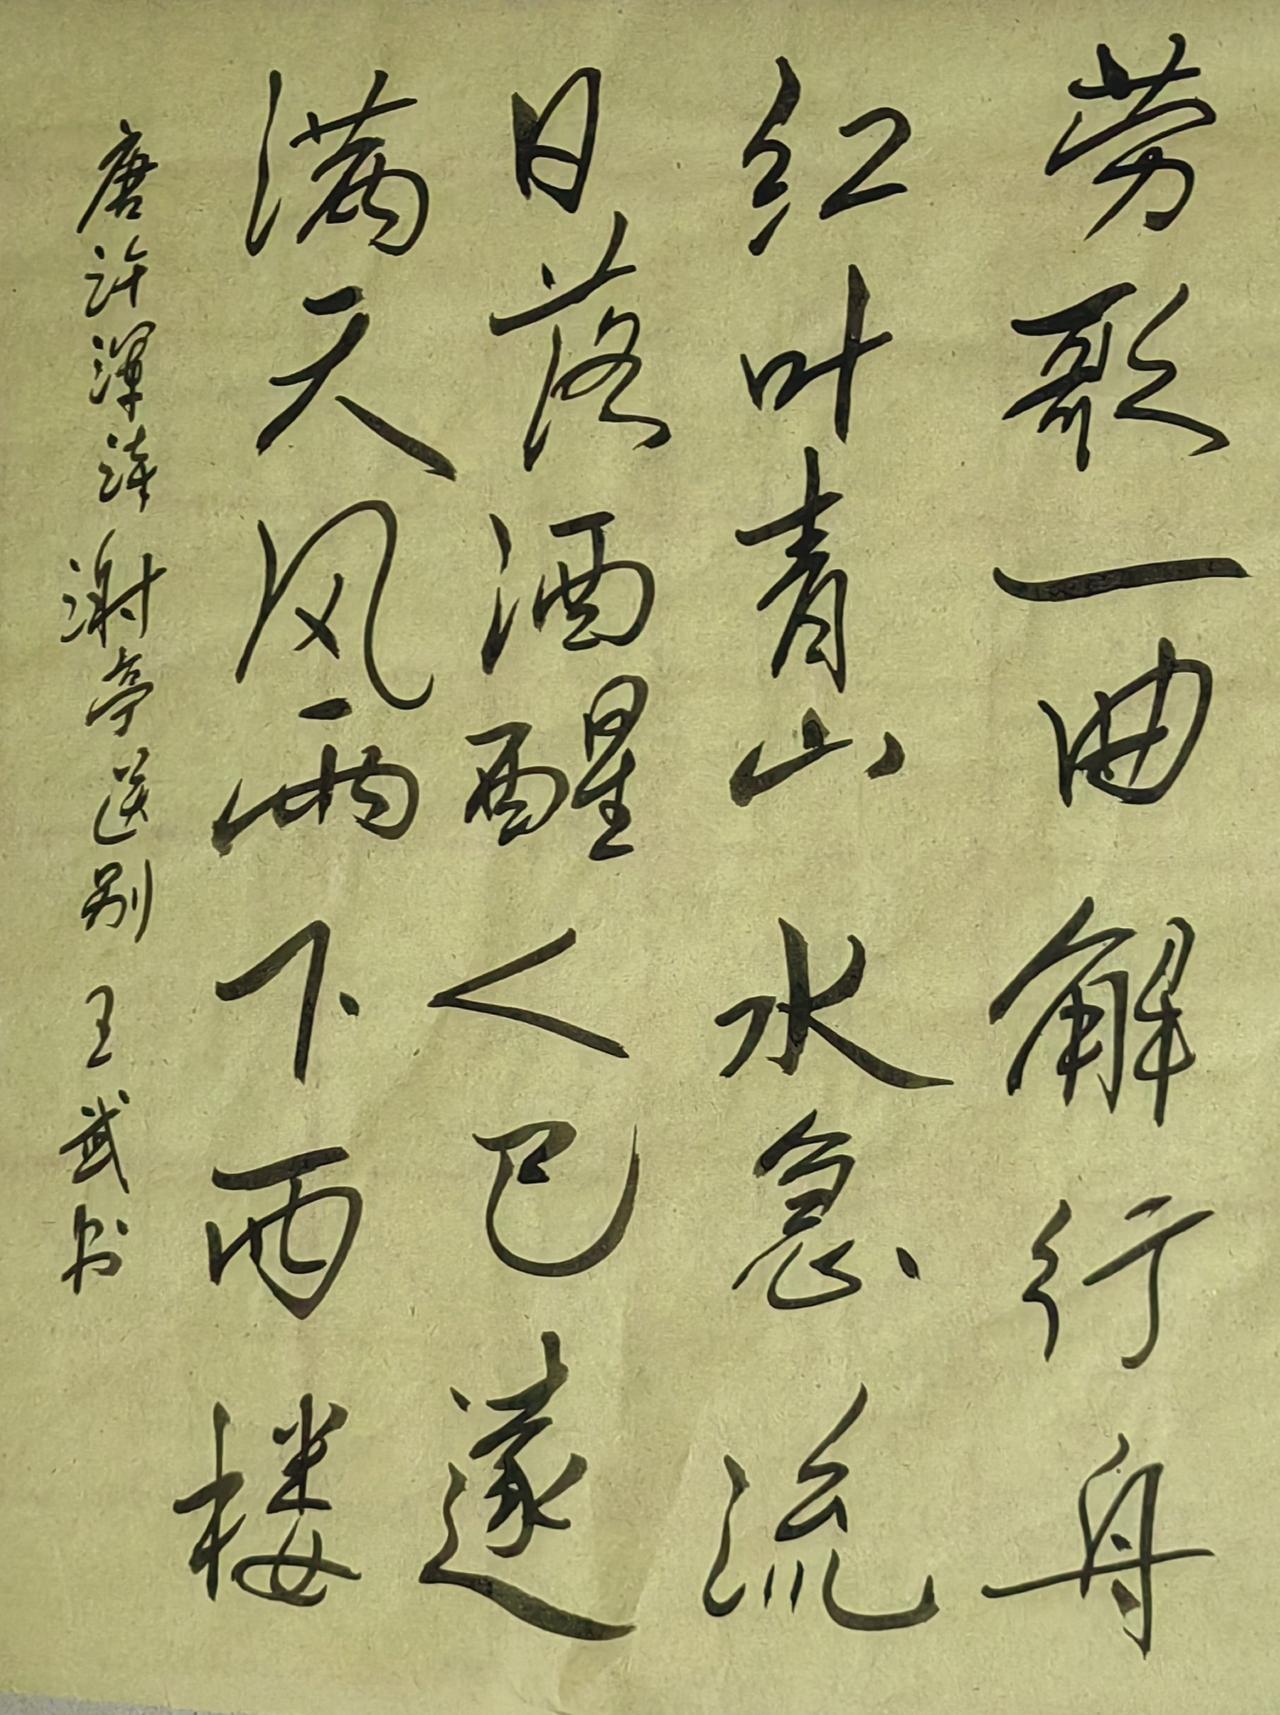 劳歌一曲解行舟
红叶青山水急流
日落酒醒人已遂
满天风雨下西楼
唐许浑诗谢亭送别 王武书